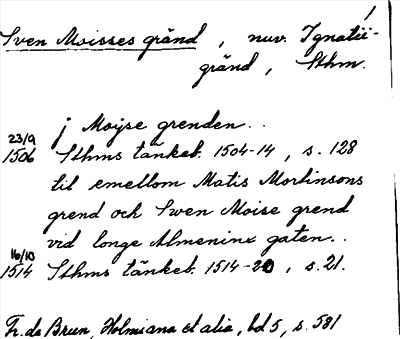 Sven Moisses gränd, nuv. Ignatii-
gränd, Sthm.
j Moijse grenden..
23/9
1506 Sthms tänkeb. 1504-14, s. 128
til emellom Matis Mortinsons
grend och Swen Moise grend
vid longe Almeninx gaten..
16/10
1514 Sthms tänkeb. 1514-20, s. 21.
Fr. de Brun, Holmiana et alia, bd 5, s. 581